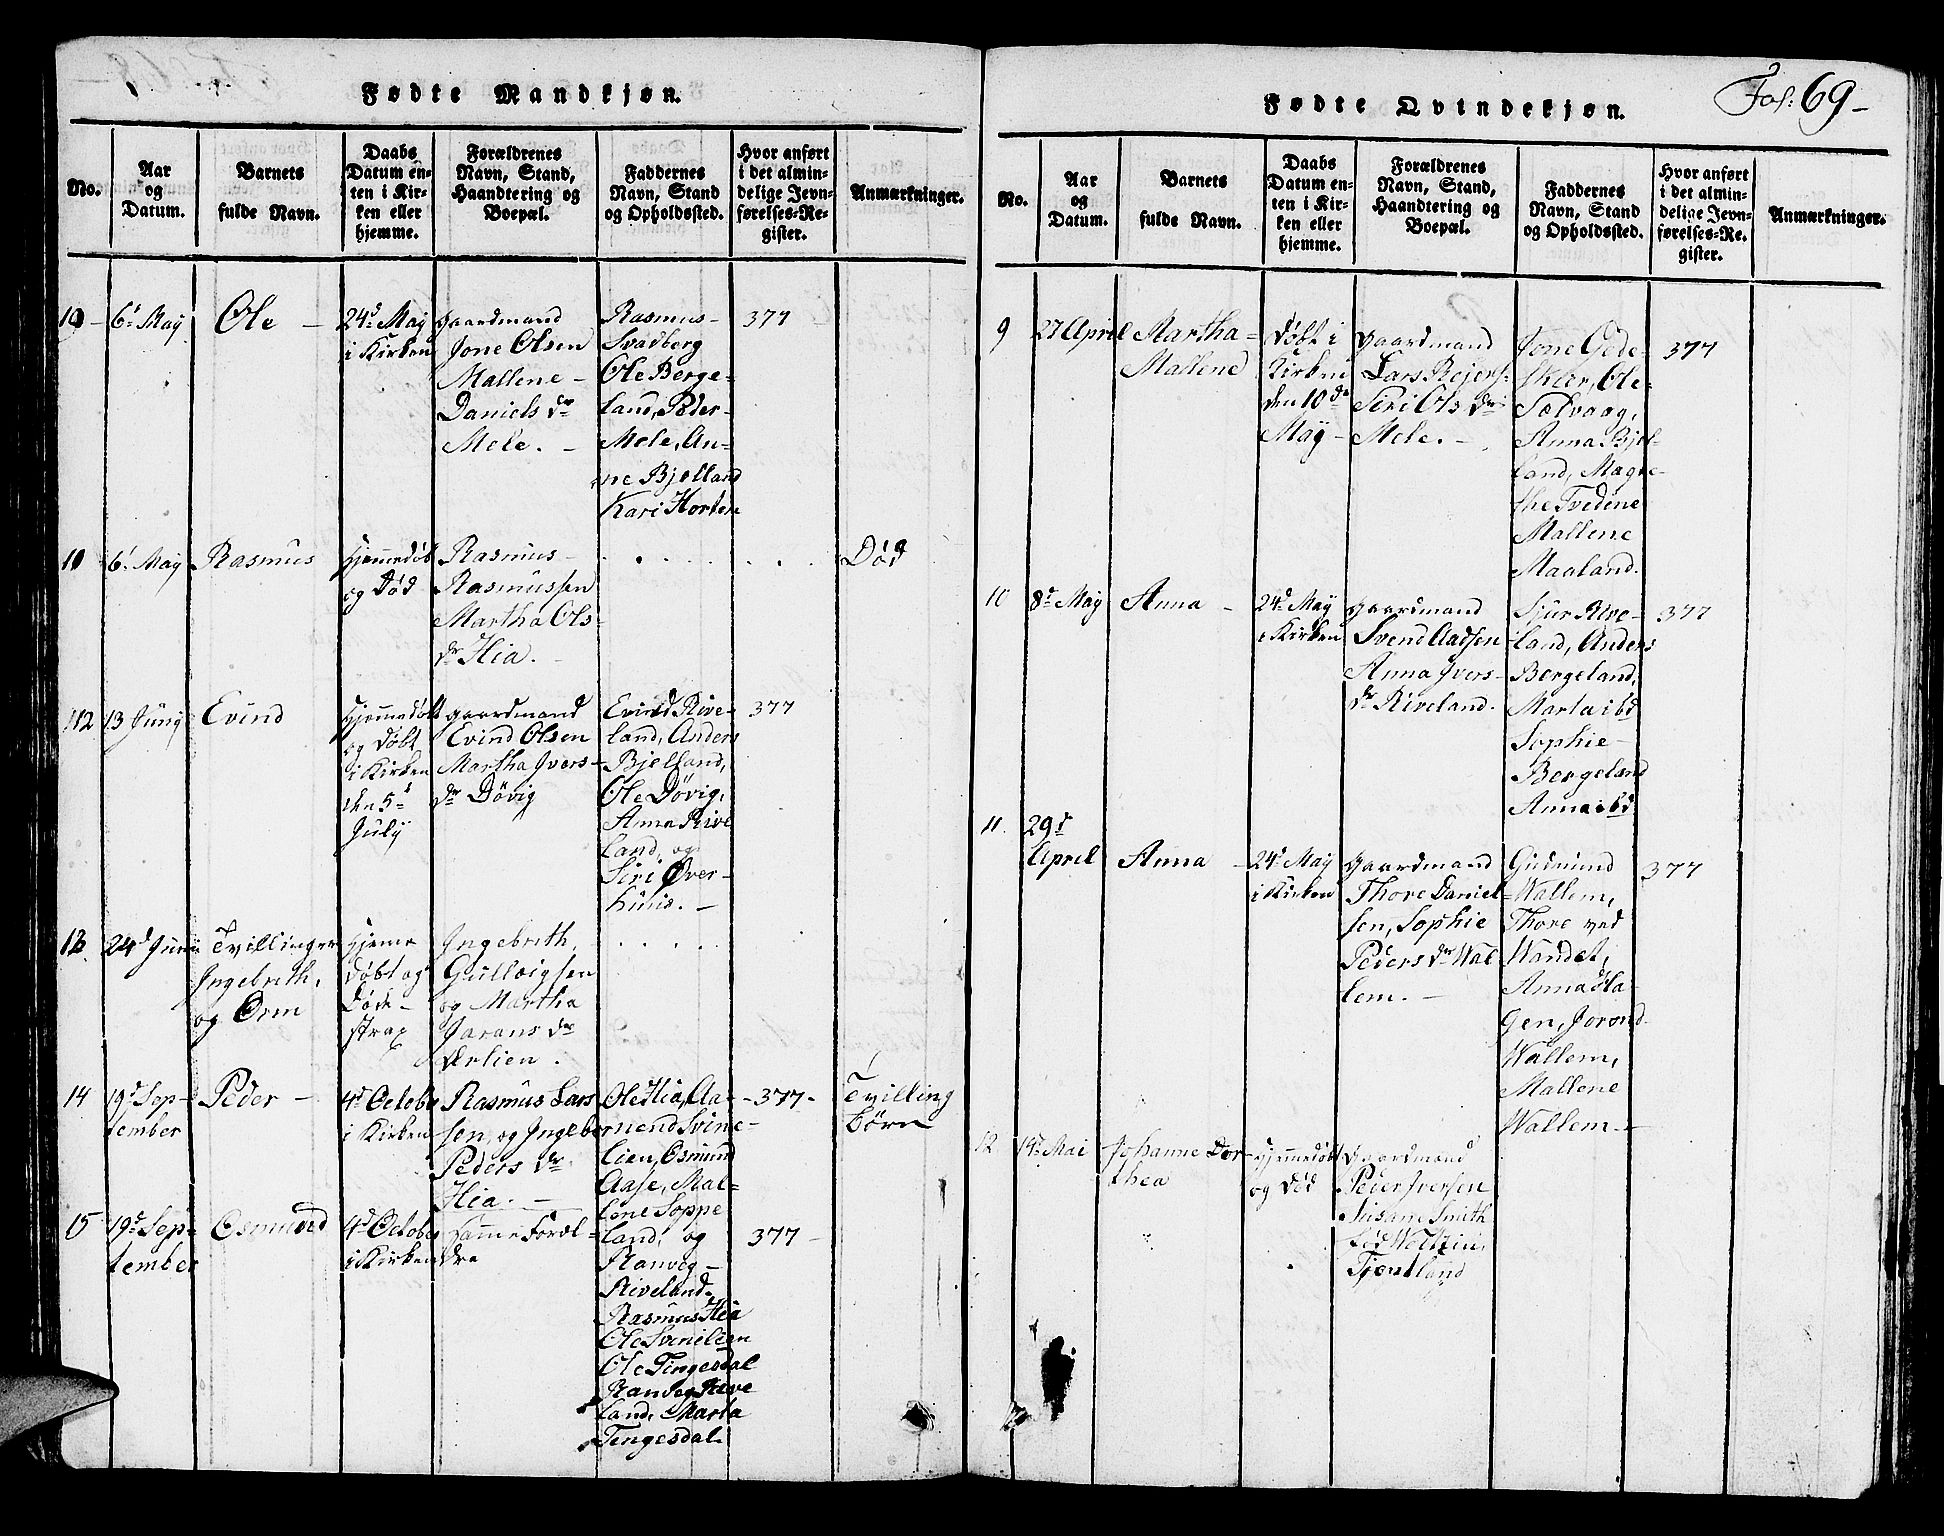 Fødte Mandkjøn.
No.
Aar
og
Datum.
Barnets
fulde Navn.
Daabs
Datum en-
ten i Kir-
ken eller
hjemme.
Forældrenes
Navn, Stand,
Haandtering og
Boepæl.
Faddernes
Navn, Stand
og Opholdssted.
Hvor anført
i det almin-
delige Jevn-
førelses-Re-
gister.
Anmærkninger.
10 -
6t May
Ole -
24d May
i Kirken
gaardmand
Jone Olsen
Mallene -
Daniels dr
Mele. -
Rasmus -
Svadberg
Ole Berge-
land, Peder -
Mele, An-
ne Bjelland
Kari Horten
377
6t May
Rasmus
Hjemedøbt
og Død
Rasmus -
Rasmussen
Martha Ols-
dr Hia. -
Død
13 Juny
Evind
Hjemmedøbt
og døbt
i Kirken
den 5d
July
gaardmand
Evind Olsen
Martha Ivers-
dr Døvig
Evind Rive-
land, Anders
Bjelland,
Ole Døvig,
Anna Rive
land, og
Siri Over-
huus. -
377
24d Juni
Tvillinger
Ingebrith,
og Orm
Hjeme
døbt og
døde -
strax
Ingebrith,
Gulleigsen
og Martha
Jarans dr
Ærlien.
14
19d Sep-
tember
Peder -
4d Octobr
i Kirken
Rasmus Lars
sen, og Ingebor
Peders dr
Hia. -
Ole Hia, Aa-
mend Svine-
lien, Osmund
Aase, Mal-
lene Soppe
land, og
Ranveg -
Riveland.
- 377 -
Tvilling
Børn
15
19d Sep-
tember
Osmund
4d Octobr
i Kirken
Samme Foræl-
dre
Rasmus Hia
Ole Svinelien
Ole Tingesdal
Ranveg Rive
land, Marta
Tingesdal.
377 -
Fødte Qvindekjøn.
Fol: 69 -
No.
Aar
og
Datum.
Barnets
fulde Navn.
Daabs
Datum en-
ten i Kir-
ken eller
hjemme.
Forældrenes
Navn, Stand,
Haandtering og
Boepæl.
Faddernes
Navn, Stand
og Opholdssted.
Hvor anført
i det almin-
delige Jevn-
førelses-Re-
gister.
Anmærkninger.
9
27 April
Martha -
Mallene
Døbt i
Kirken
den 10de
May -
gaardmand
Lars Rejers-
Siri Ols dr
Mele. -
Jone Gede-
skær, Ole
Sælvaag,
Anna Bjel-
land, Magre-
the Tvedene
Mallene
Maaland.
377
10
8d May
Anna -
24d May
i Kirken
gaardmand
Svend Aadsen
Anna Ivers-
dr Riveland.
Sjur Rive-
land, Anders
Bergeland,
Marta ibd
Sophie -
Bergeland
Anna ibd
377
11.
29d
April
Anna -
24d May
i Kirken
gaardmand
Thore Daniel
sen, Sophie
Peders dr Wal
lem. -
Gudmund
Wallem,
Thore ved
Wandet,
Anna Ha-
gen, Jorond
Wallem,
Mallene
Wallem. -
377
12
19d Mai
Johanne Dor-
thea
Hjemmedøbt
og død
Gaardmand
Peder Iversen
Susane Smith
Tjentland